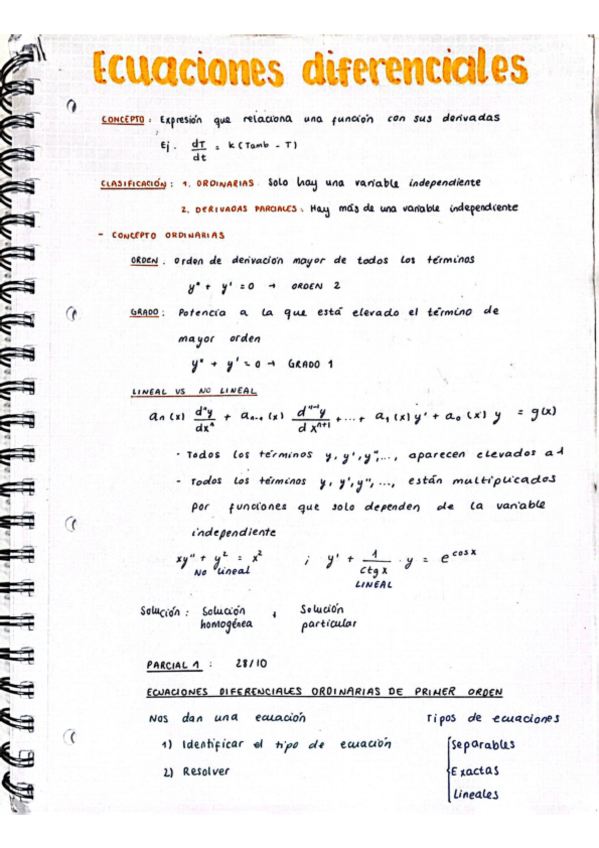 Ecuaciones diferenciales
CONCEPTO: Expresión que relaciona una función con sus derivadas
Ej. dT/dt = k(Tamb - T)
CLASIFICACIÓN: 1. ORDINARIAS. Solo hay una variable independiente
2. DERIVADAS PARCIALES. Hay más de una variable independiente
- CONCEPTO ORDINARIAS
ORDEN. Orden de derivación mayor de todos los términos
y" + y' = 0 → ORDEN 2
GRADO: Potencia a la que está elevado el término de
mayor orden
y" + y' = 0 → GRADO 1
LINEAL VS NO LINEAL
an(x) dⁿy/dxⁿ + an-1(x) dⁿ⁻¹y/dxⁿ⁺¹ + ... + a1(x)y' + a0(x)y = g(x)
- Todos los términos y, y', y",..., aparecen elevados a 1
- Todos los términos y, y', y", ..., están multiplicados
por funciones que solo dependen de la variable
independiente
xy" + y² = x² ; y' + 1/ctgx · y = e^cosx
No lineal LINEAL
Solución: Solución homogénea + Solución particular
PARCIAL 1: 28/10
ECUACIONES DIFERENCIALES ORDINARIAS DE PRIMER ORDEN
Nos dan una ecuación Tipos de ecuaciones
1) Identificar el tipo de ecuación Separables
2) Resolver Exactas
Lineales